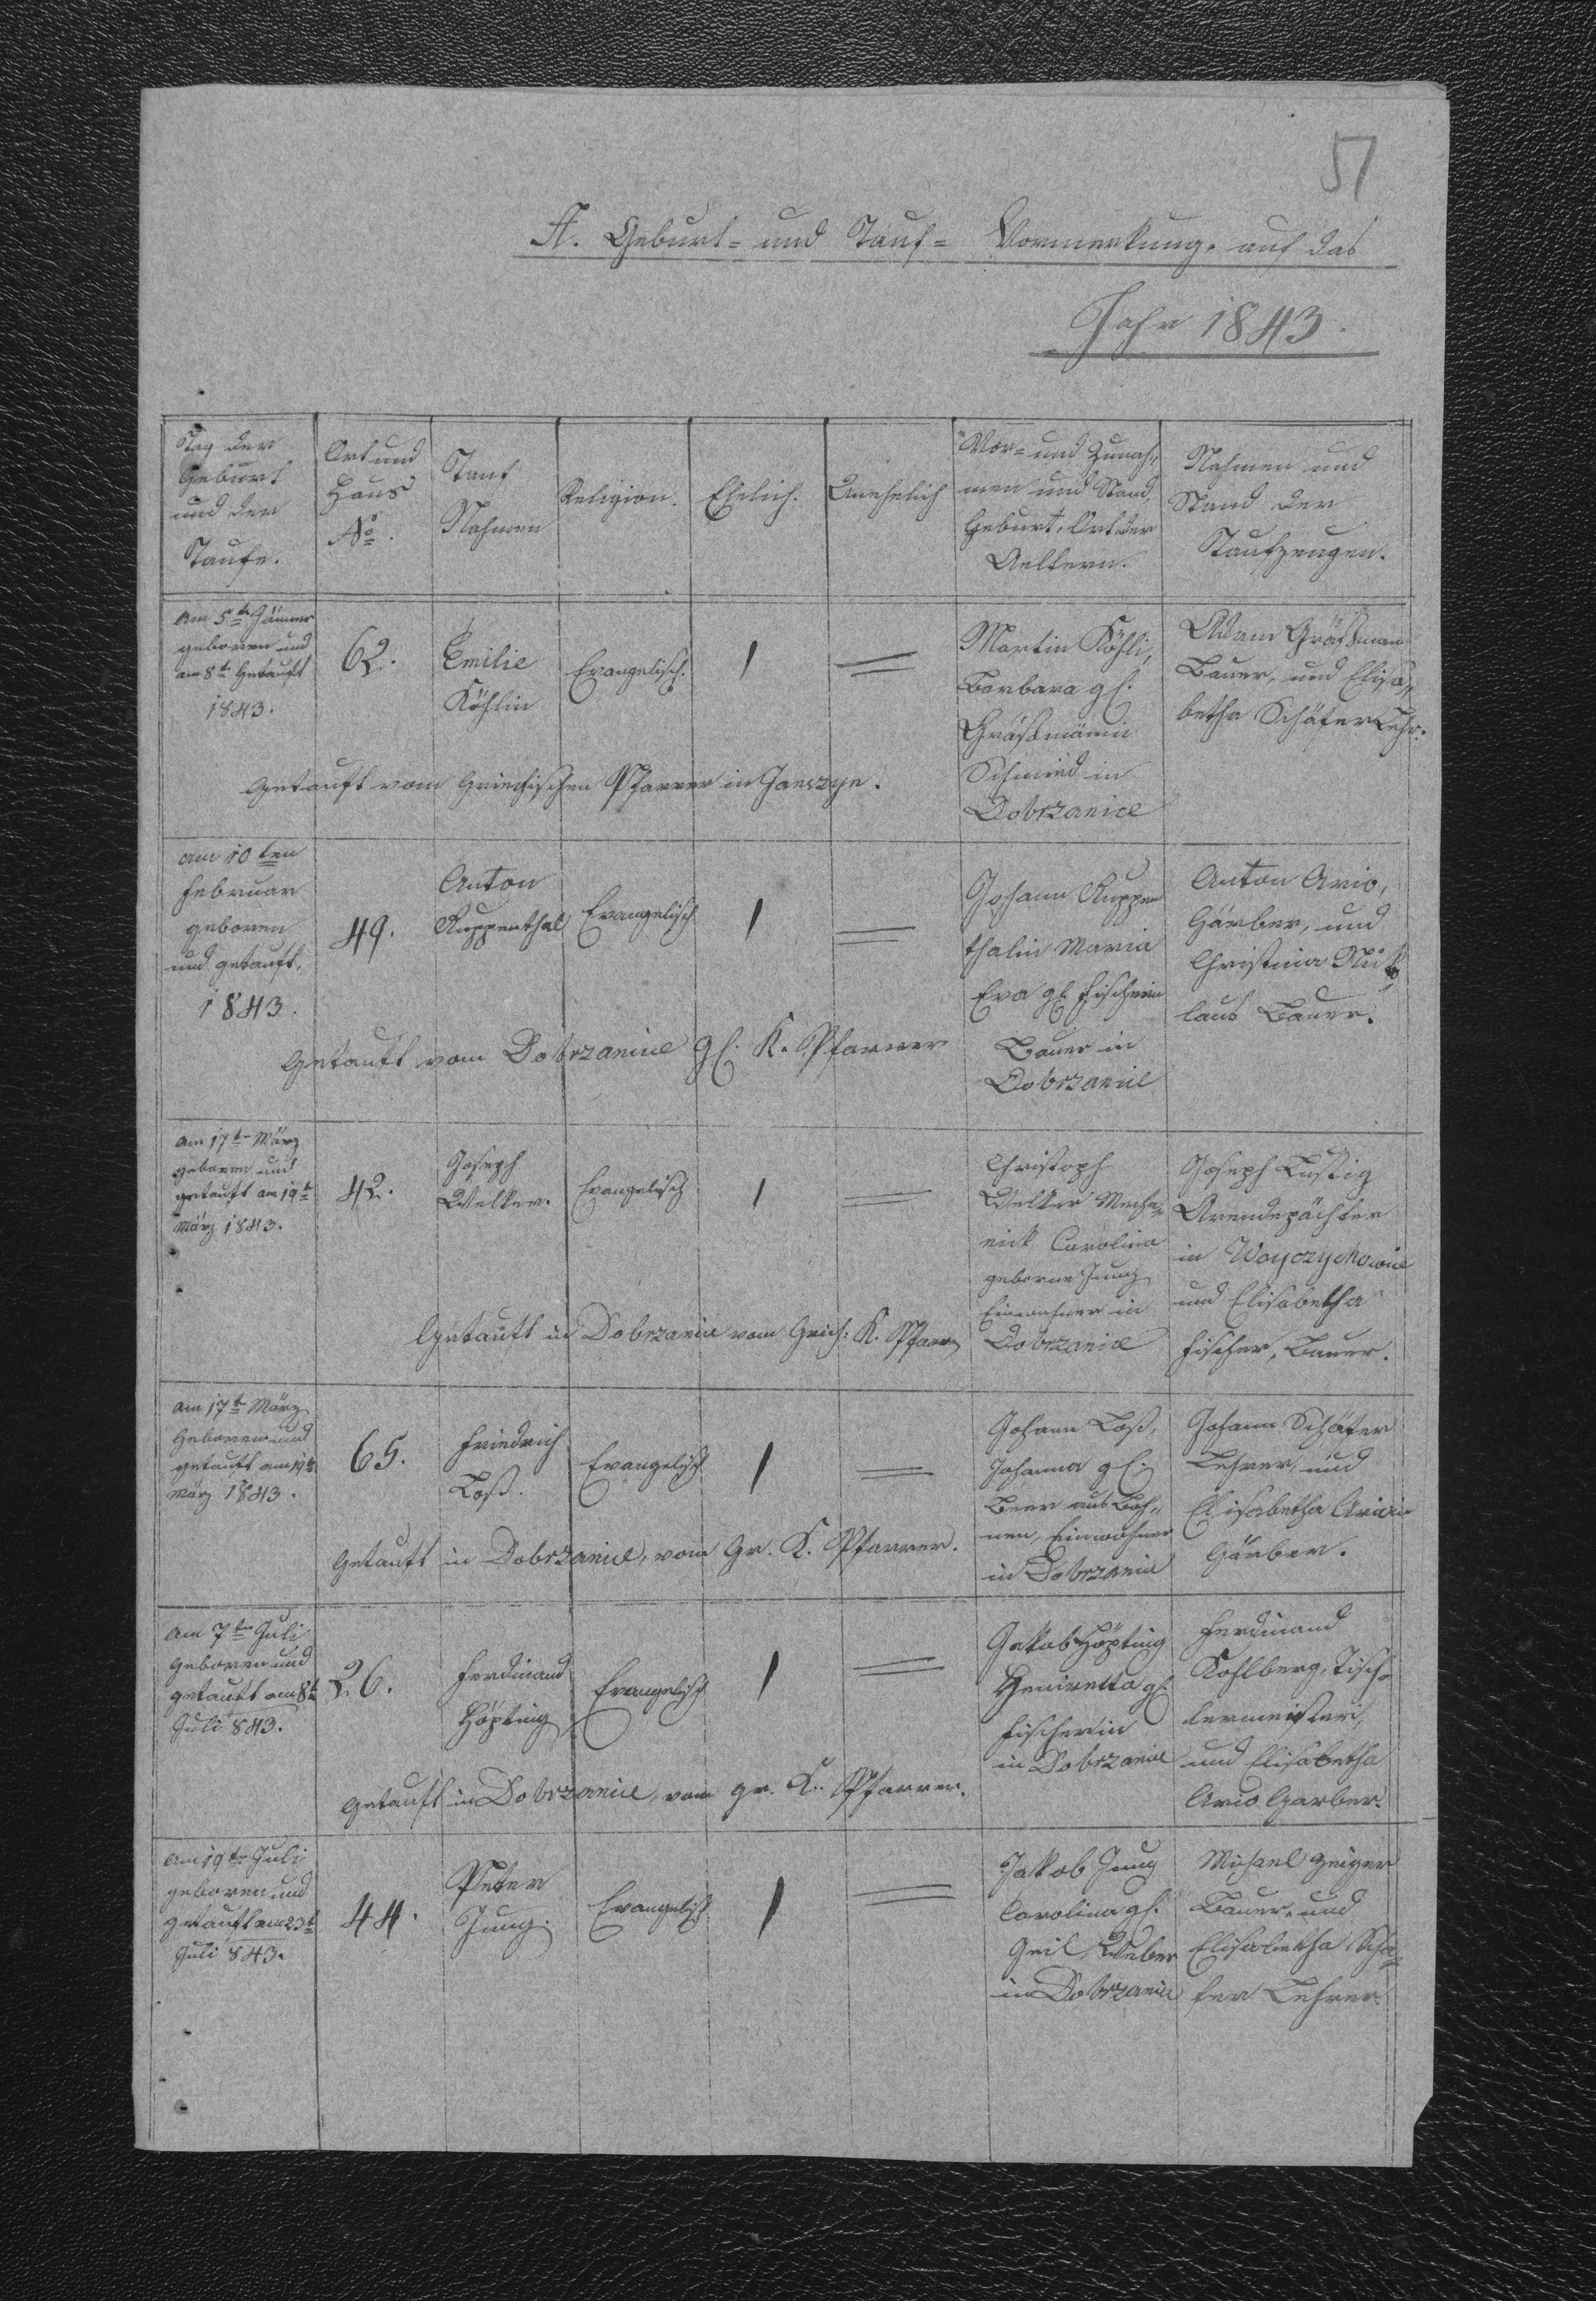 51
A. Geburt- und Tauf- Vormerkung, auf das
Jahr 1843.
Tag der
Geburt
und der
Taufe.
Ort und
Haus
No.
Tauf
Nahmen
Religion.
Ehelich.
Unehelich
Vor- und Zunah-
men und Stand,
Geburt, Ort der
Aeltern.
Nahmen und
Stand der
Taufzeugen.
Am 5t Jänner
geboren und
am 8t Getauft
1843.
62.
Emilie
Köhlin
Evangelisch.
1
Martin Köhli,
Barbara gb.
Gräßmänin
Schmied in
Dobrzanice
Adam Gräßmann
Bauer, und Elisa-
betha Schäfer Lehr.
Getauft vom Griechischen Pfarrer in
am 10ten
Februar
geboren
und getauft,
1843.
49.
Anton
Ruppenthal
Evangelisch
1
Johann Ruppen
thalin Maria
Eva gb Fischerin
Bauer in
Dobrzanice
Anton Ario,
Gärber, und
Christina
laus Bauer.
Getauft vom Dobrzanice K. Pfarrer
am 17t März
geboren und
getauft am 19t
März 1843.
42.
Joseph
Welker.
Evangelisch
1
Christoph
Welker Mecha-
nick Carolina
geborne Jung
Einwohner in
Dobrzanice
Joseph Lustig
Arendepächter
in
und Elisabetha
Fischer, Bauer.
Getauft in Dobrzanice vom Griech: K. Pfarr
am 17t März
Geboren und
getauft am 19t
März 1843.
65.
Friedrich
Loß.
Evangelisch
1
Johann Loß,
Johanna gb.
Beer aus Böh-
men, Einwohner
in Dobrzanice
Johann Schäfer
Lehrer, und
Elisabetha Arioin
Gärber.
Getauft in Dobrzanice, vom Gr. K. Pfarrer.
Am 7ten Juli
Geboren und
getauft am 8t
Juli 843.
26.
Ferdinand
Höpting
Evangelisch
1
Jakob Höpting
Henrietta gb.
Fischerin
in Dobrzanice
Ferdinand
Kohlberg, Tisch-
lermeister,
und Elisabetha
Ario Garber.
Getauft in Dobrzanice, vom gr. K. Pfarrer.
Am 19ten Juli
geboren und
getauft am 23t
Juli 843.
44.
Peter
Jung.
Evangelisch
1
Jakob Jung
Carolina gb.
Geil, Weber
in Dobrzanice
Michael Geiger
Bauer, und
Elisabetha Schä-
fer Lehrer